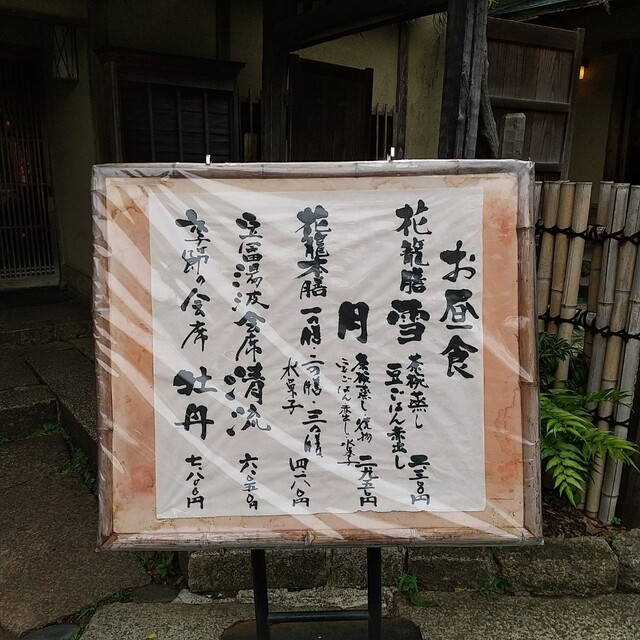 お昼食
花籠膳 雪 茶碗蒸し
豆ごはん 赤出し 二三一〇円
月 茶碗蒸し 焼物
豆ごはん 赤出し 水菓子 二九五〇円
花籠本膳 一の膳・二の膳 三の膳
水菓子 四一八〇円
会席 清流 六〇五〇円
季節の会席 牡丹 七八一〇円